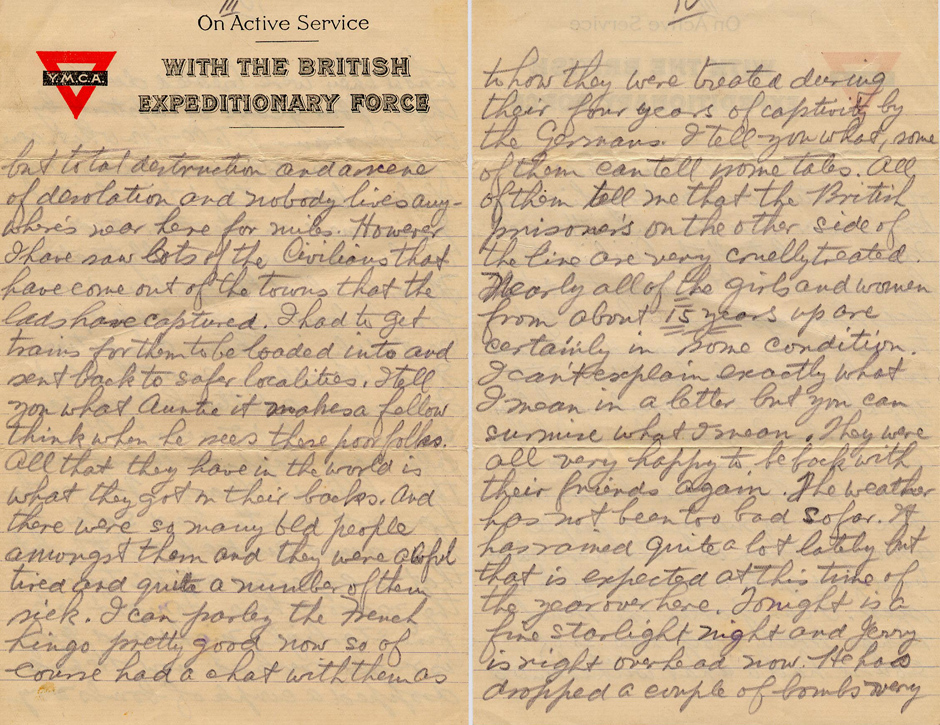 III
On Active Service
Y.M.C.A.
WITH THE BRITISH
EXPEDITIONARY FORCE
but total destruction and a scene
of desolation and nobody lives any-
where's near here for miles. However
I have saw lots of the Civilians that
have come out of the towns that the
lads have captured. I had to get
trains for them to be loaded into and
sent back to safer localities. I tell
you what Auntie it makes a fellow
think when he sees these poor folks.
All that they have in the world is
what they got on their backs. And
there were so many old people
amongst them and they were awful
tired and quite a number of them
sick. I can parley the French
lingo pretty good now so of
course had a chat with them as
IV
to how they were treated during
their four years of captivity by
the Germans. I tell you what, some
of them can tell some tales. All
of them tell me that the British
prisoner's on the other side of
the line are very cruelly treated.
Nearly all of the girls and women
from about 15 years up are
certainly in some condition.
I can't explain exactly what
I mean in a letter but you can
surmise what I mean. They were
all very happy to be back with
their friends again. The weather
has not been too bad so far. It
has rained quite a lot lately but
that is expected at this time of
the year over here. Tonight is a
fine starlight night and Jerry
is right overhead now. He has
dropped a couple of bombs very